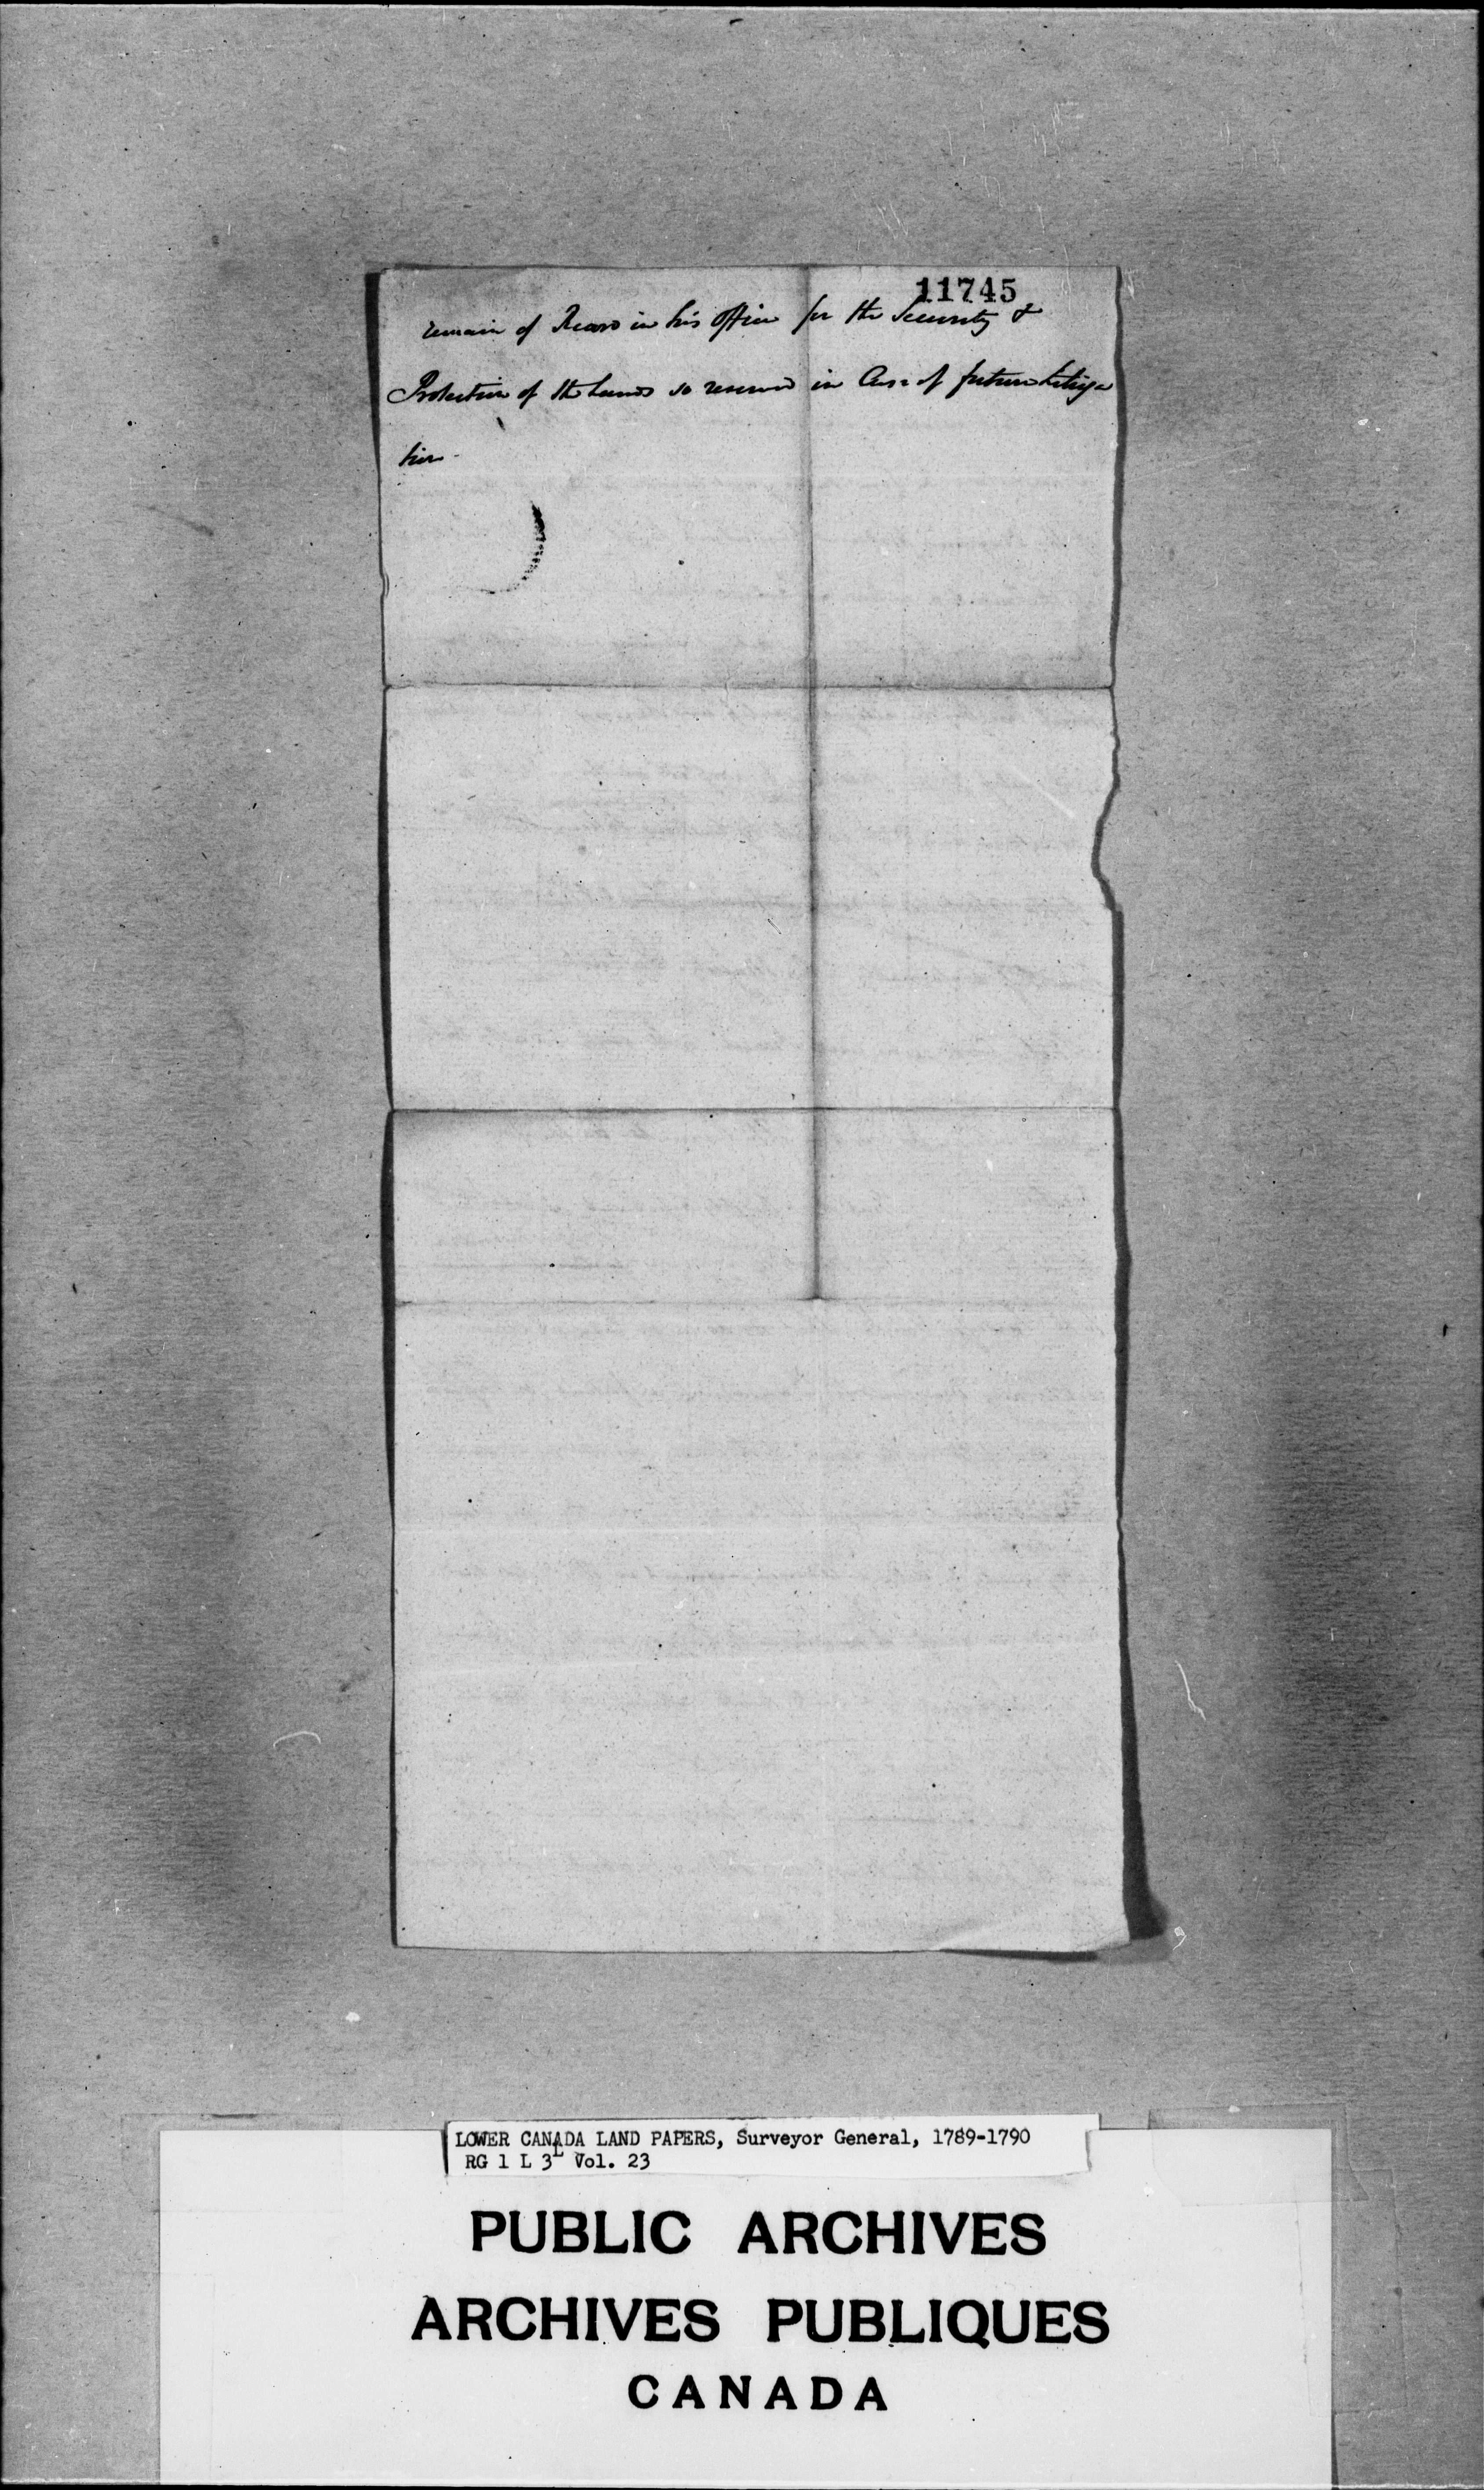 11745
remain of Record in his Office for the Security &
Protection of the Lands so reserved in Case of future Litiga
tion.
LOWER CANADA LAND PAPERS, Surveyor General, 1789-1790
RG 1 L 3L Vol. 23
PUBLIC ARCHIVES
ARCHIVES PUBLIQUES
CANADA